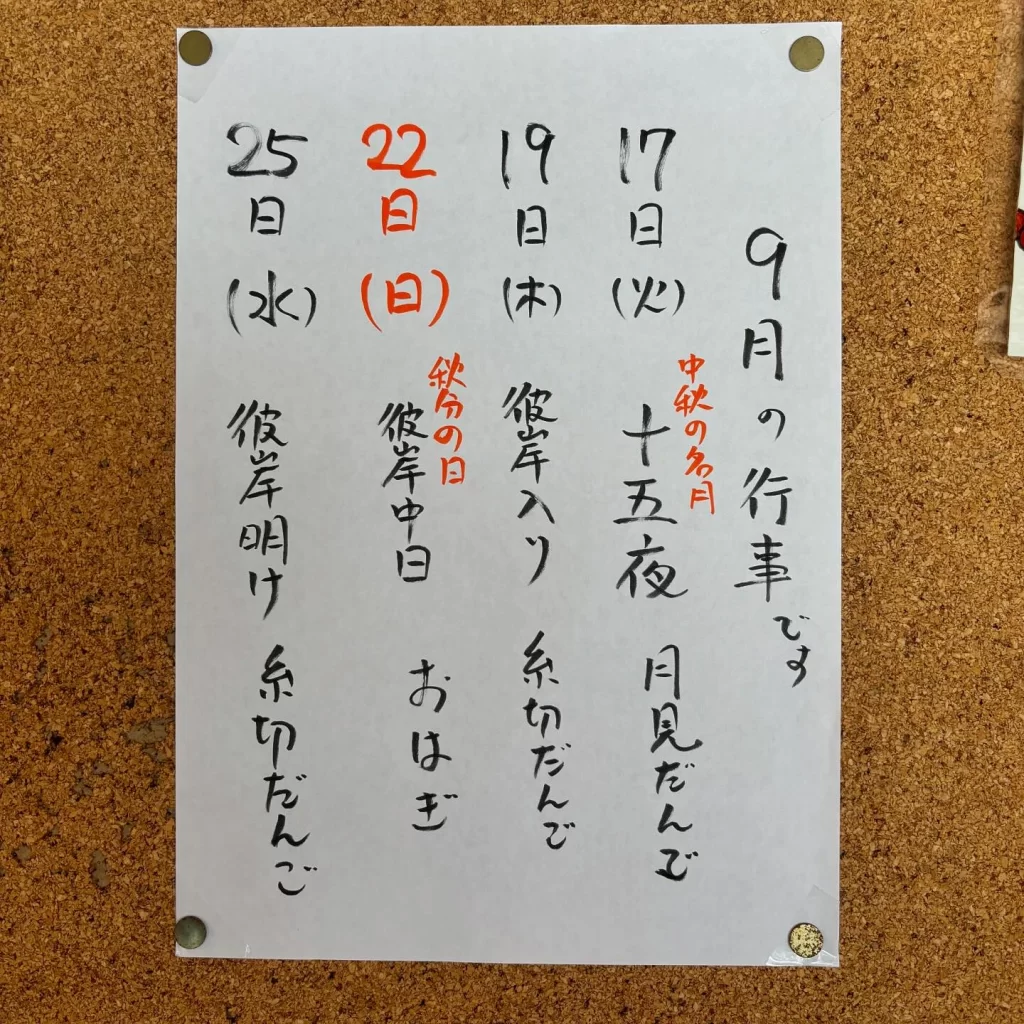 9月の行事です
17日(火) 中秋の名月 十五夜 月見だんご
19日(木) 彼岸入り 糸切だんご
22日(日) 秋分の日 彼岸中日 おはぎ
25日(水) 彼岸明け 糸切だんご